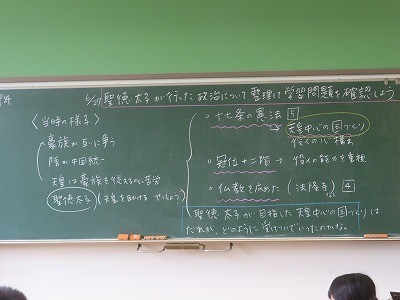 6/27 聖徳太子が行った政治について整理し学習問題を確認しよう
〈当時の様子〉
豪族が互いに争う
隋が中国統一
天皇は豪族を従えるのに苦労
聖徳太子(天皇を助ける せっしょう)
○十七条の憲法 5
→天皇中心の国づくり
役人の心構え
○冠位十二階→役人の能力を重視
○仏教を広めた(法隆寺) 4
聖徳太子が目指した天皇中心の国づくりは
だれが、どのように受けついでいったのかな。